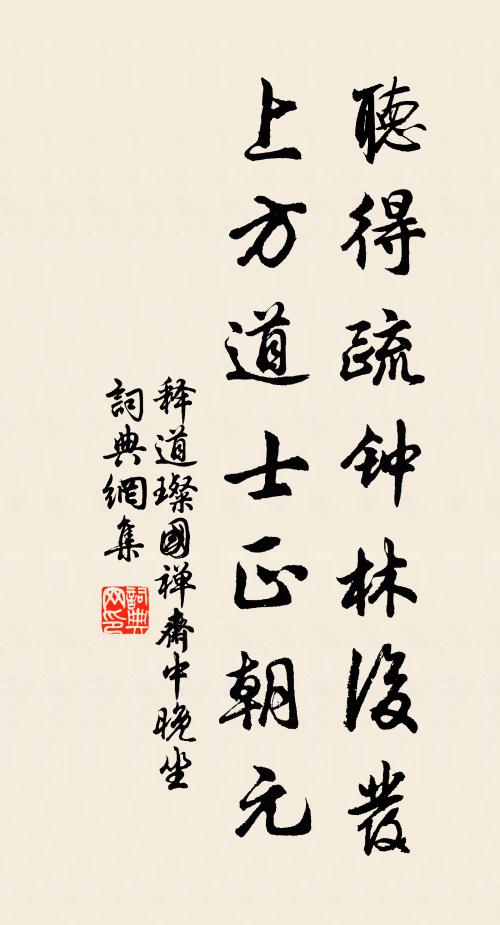 聽得疏钟林後發
上方道士正朝元
释道璨國禅齋中晚坐
詞典網集
詞典网印